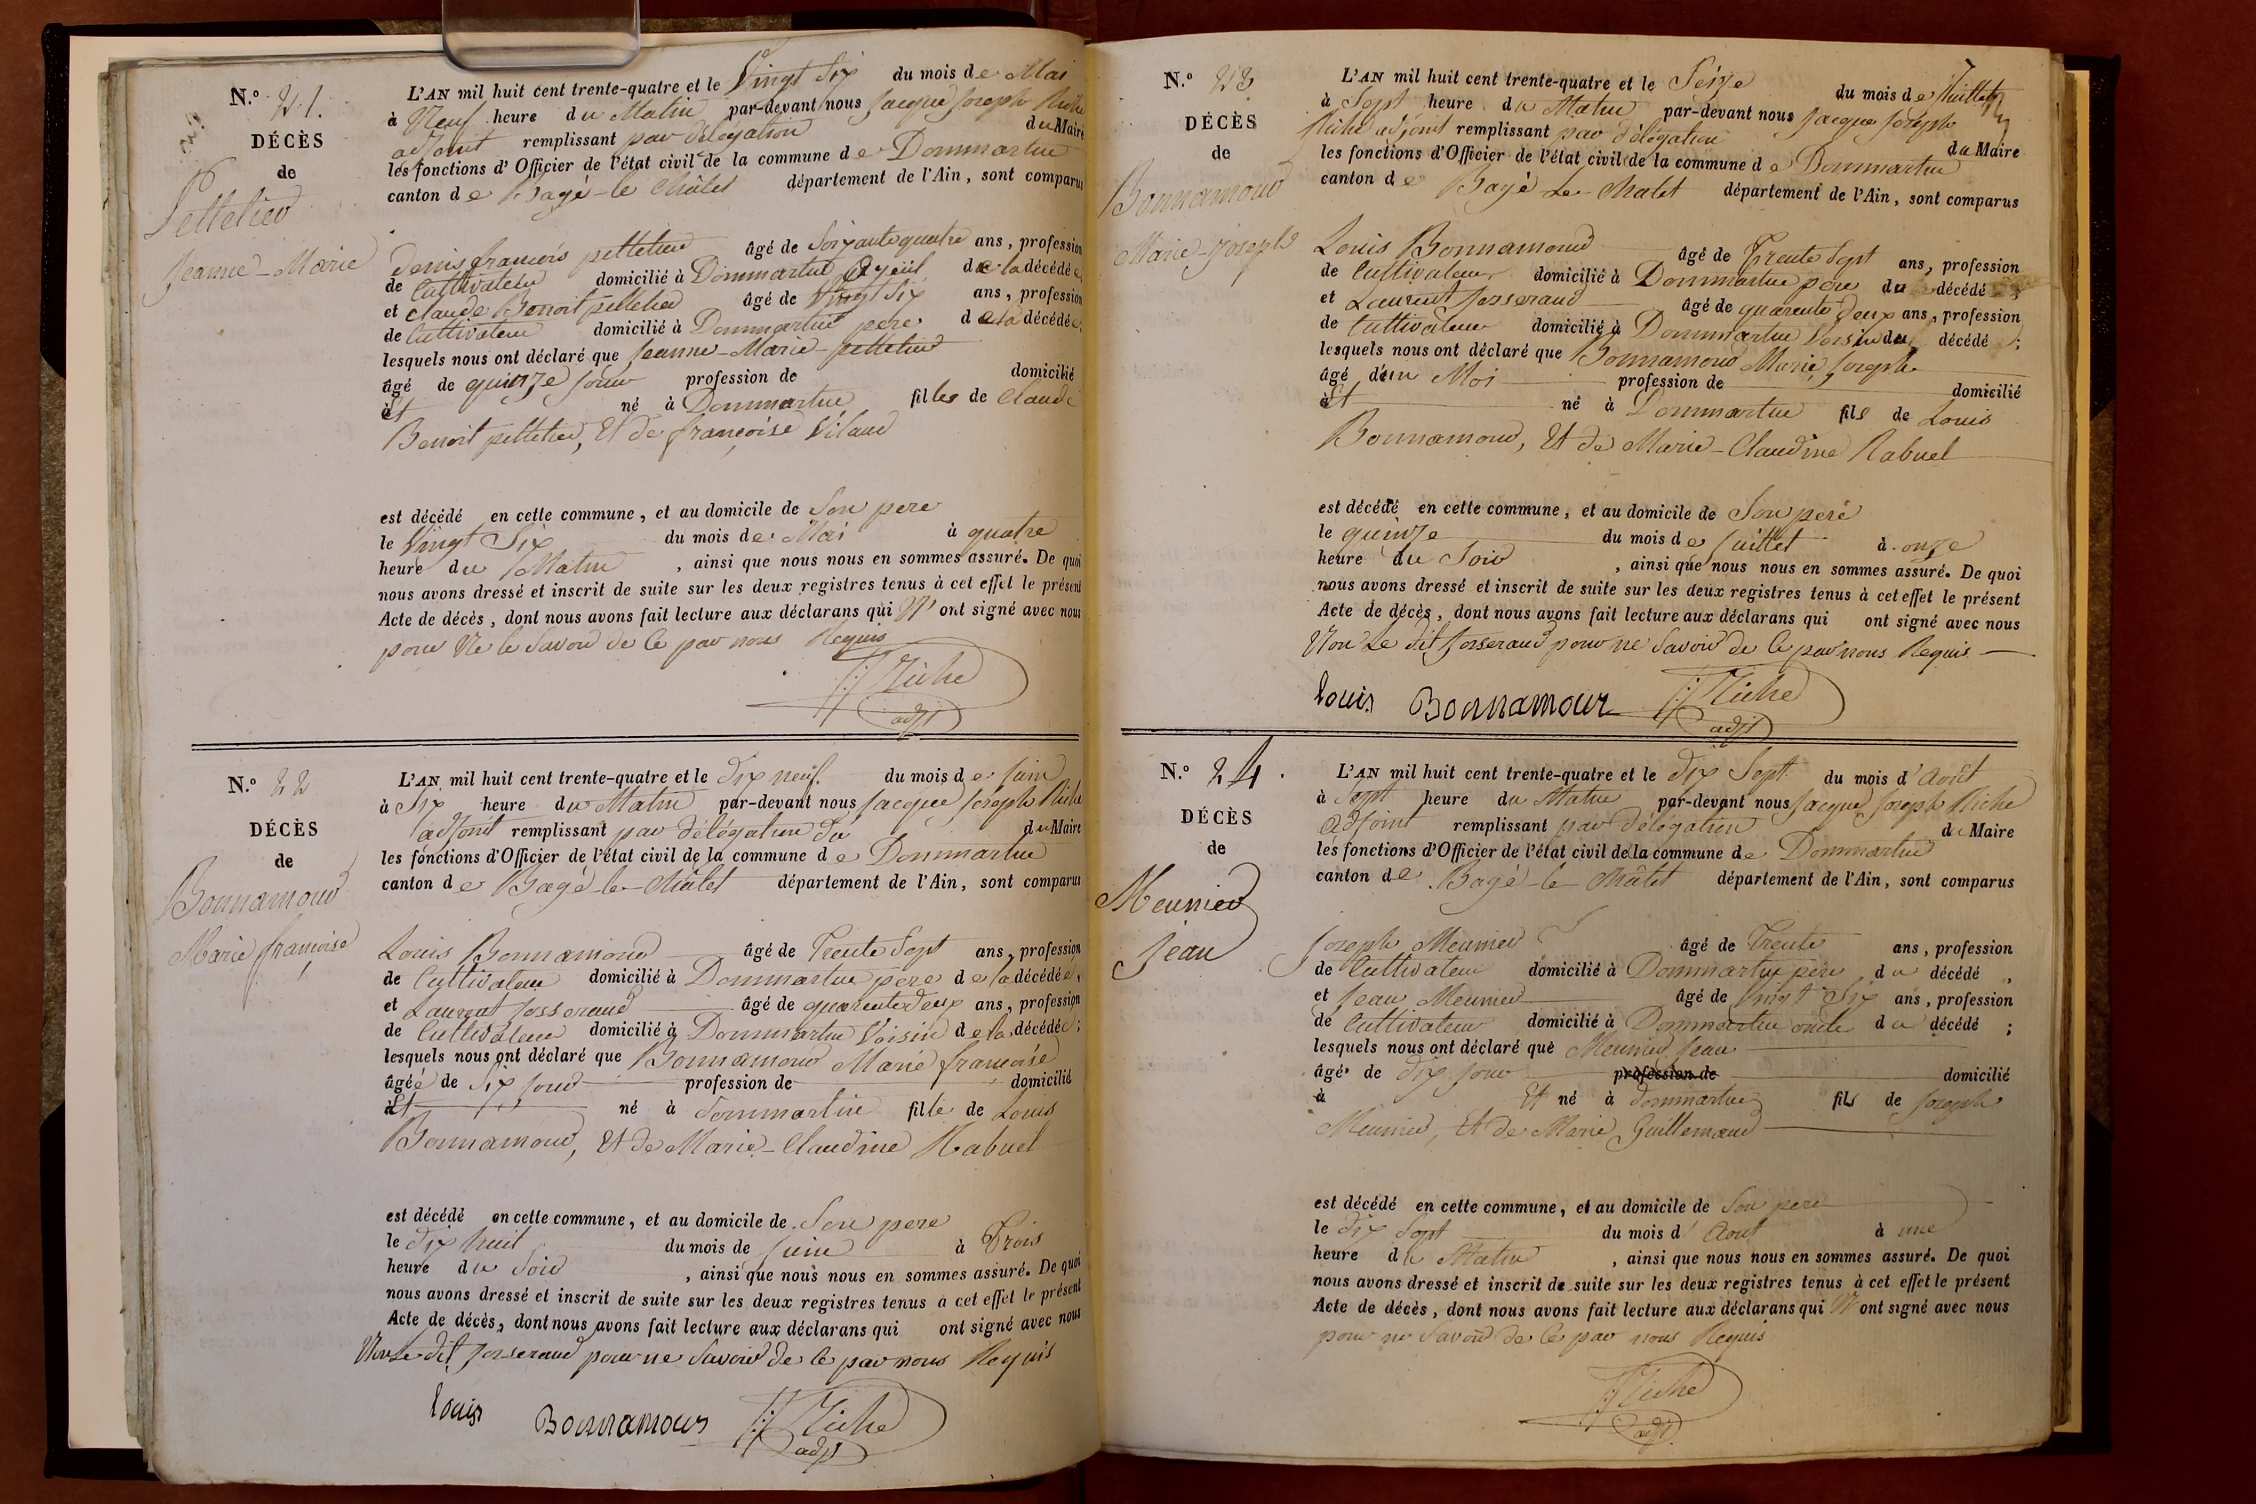 N.o 21.
DÉCÈS
de
Pelletier
Jeanne-Marie
L'AN mil huit cent trente-quatre et le Vingt Six du mois de Mai
à Neuf heure du Matin par-devant nous Jacques Joseph Riche
adjoint remplissant par délégation du Maire
les fonctions d'Officier de l'état civil de la commune de Dommartin
canton de Bagé-le-Châtel département de l'Ain, sont comparus
Denis françois pelletier âgé de Soixante quatre ans, profession
de Cultivateur domicilié à Dommartin ayeül de la décédée,
et claude Benoit pelletier âgé de Vingt Six ans, profession
de Cultivateur domicilié à Dommartin pere de la décédée;
lesquels nous ont déclaré que Jeanne-Marie-pelletier
âgé de quinze jour profession de domicilié
à Et né à Dommartin filles de Claude
Benoit pelletier, Et de françoise Vilaud
est décédé en cette commune, et au domicile de Son pere
le Vingt Six du mois de Mai à quatre
heure du Matin, ainsi que nous nous en sommes assuré. De quoi
nous avons dressé et inscrit de suite sur les deux registres tenus à cet effet le présent
Acte de décès, dont nous avons fait lecture aux déclarans qui N' ont signé avec nous
pour Ne le Savoir de Ce par nous Requis
JJ Riche
adjt
N.o 22
DÉCÈS
de
Bonnamour
Marie françoise
L'AN mil huit cent trente-quatre et le dix neuf du mois de Juin
à Six heure du Matin par-devant nous Jacques Joseph Riche
adjoint remplissant par délégation du du Maire
les fonctions d'Officier de l'état civil de la commune de Dommartin
canton de Bagé-le-Châtel département de l'Ain, sont comparus
Louis Bonnamour âgé de Trente Sept ans, profession
de Cultivateur domicilié à Dommartin pere de la décédée,
et Laurent Josserand âgé de quarente deux ans, profession
de Cultivateur domicilié à Dommartin Voisin de la décédée;
lesquels nous ont déclaré que Bonnamour Marie françoise
âgée de Six jour profession de domicilié
à Et né à Dommartin fille de Louis
Bonnamour, Et de Marie-Claudine Rabuel
est décédé en cette commune, et au domicile de Son pere
le dix huit du mois de Juin à Trois
heure du Soir, ainsi que nous nous en sommes assuré. De quoi
nous avons dressé et inscrit de suite sur les deux registres tenus à cet effet le présent
Acte de décès, dont nous avons fait lecture aux déclarans qui ont signé avec nous
Non Le dit Josserand pour ne Savoir de Ce par nous Requis
louis Bonnamour JJ Riche
adjt
N.o 23
DÉCÈS
de
Bonnamour
Marie-Joseph
L'AN mil huit cent trente-quatre et le Seize du mois de Juillet
à Sept heure du Matin par-devant nous Jacques Joseph
Riche adjoint remplissant par délégation du Maire
les fonctions d'Officier de l'état civil de la commune de Dommartin
canton de Bagé-Le-Chatel département de l'Ain, sont comparus
Louis Bonnamour âgé de Trente Sept ans, profession
de Cultivateur domicilié à Dommartin pere du décédé
et Laurent Josserand âgé de quarente deux ans, profession
de Cultivateur domicilié à Dommartin Voisin du décédé;
lesquels nous ont déclaré que Bonnamour Marie Joseph
âgé d'un Moi profession de domicilié
à Et né à Dommartin fils de Louis
Bonnamour, Et de Marie-Claudine Rabuel
est décédé en cette commune, et au domicile de Son pere
le quinze du mois de Juillet à onze
heure du Soir, ainsi que nous nous en sommes assuré. De quoi
nous avons dressé et inscrit de suite sur les deux registres tenus à cet effet le présent
Acte de décès, dont nous avons fait lecture aux déclarans qui ont signé avec nous
Non Le dit Josserand pour ne Savoir de Ce par nous Requis
louis Bonnamour JJ Riche
adjt
N.o 24.
DÉCÈS
de
Meunier
Jean
L'AN mil huit cent trente-quatre et le dix Sept du mois d'Août
à Sept heure du Matin par-devant nous Jacques Joseph Riche
adjoint remplissant par délégation du Maire
les fonctions d'Officier de l'état civil de la commune de Dommartin
canton de Bagé-le-Châtel département de l'Ain, sont comparus
Joseph Meunier âgé de Trente ans, profession
de Cultivateur domicilié à Dommartin pere du décédé,
et Jean Meunier âgé de Vingt Six ans, profession
de Cultivateur domicilié à Dommartin oncle du décédé;
lesquels nous ont déclaré que Meunier Jean
âgé de dix jour profession de domicilié
à Et né à Dommartin fils de Joseph
Meunier, Et de Marie Guillemaud
est décédé en cette commune, et au domicile de Son pere
le dix Sept du mois d'Aout à une
heure du Matin, ainsi que nous nous en sommes assuré. De quoi
nous avons dressé et inscrit de suite sur les deux registres tenus à cet effet le présent
Acte de décès, dont nous avons fait lecture aux déclarans qui N' ont signé avec nous
pour ne Savoir de Ce par nous Requis
JJ Riche
adjt